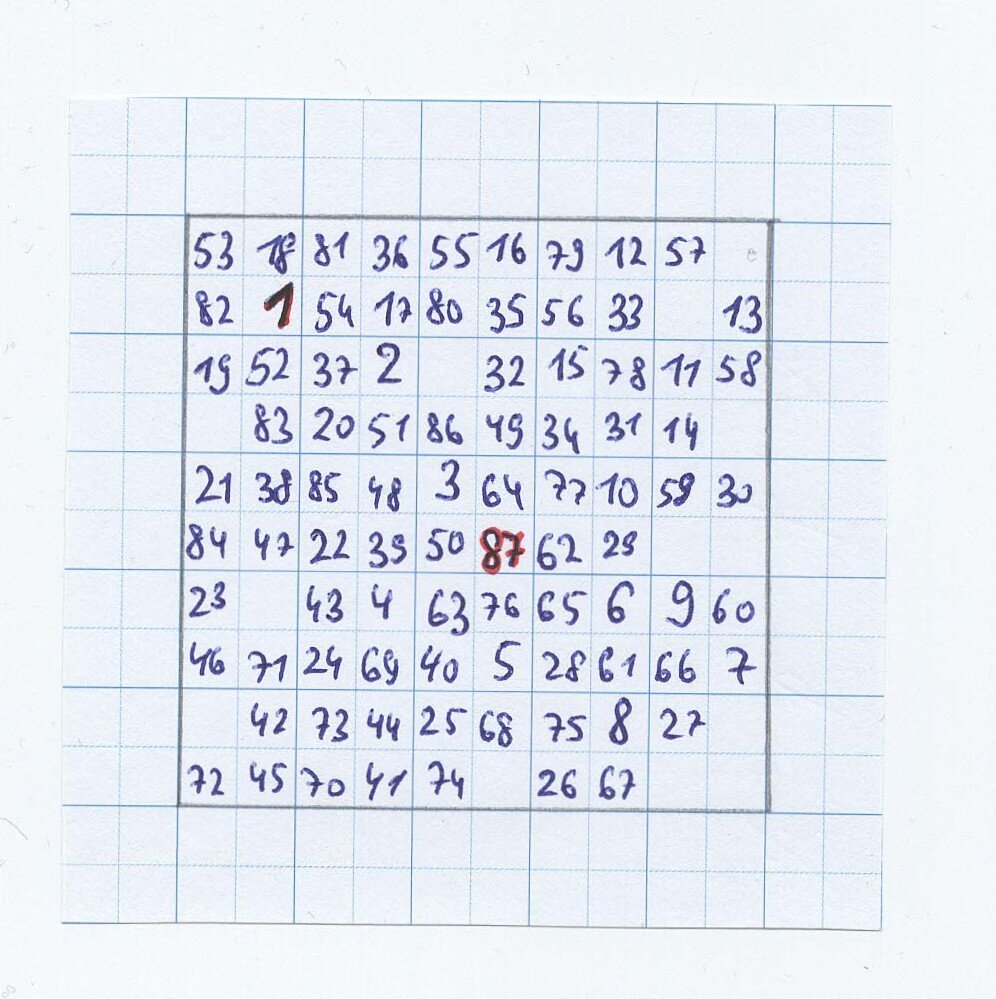 53 18 81 36 55 16 79 12 57
82 1 54 17 80 35 56 33 13
19 52 37 2 32 15 78 11 58
83 20 51 86 49 34 31 14
21 38 85 48 3 64 77 10 59 30
84 47 22 39 50 87 62 29
23 43 4 63 76 65 6 9 60
46 71 24 69 40 5 28 61 66 7
42 73 44 25 68 75 8 27
72 45 70 41 74 26 67